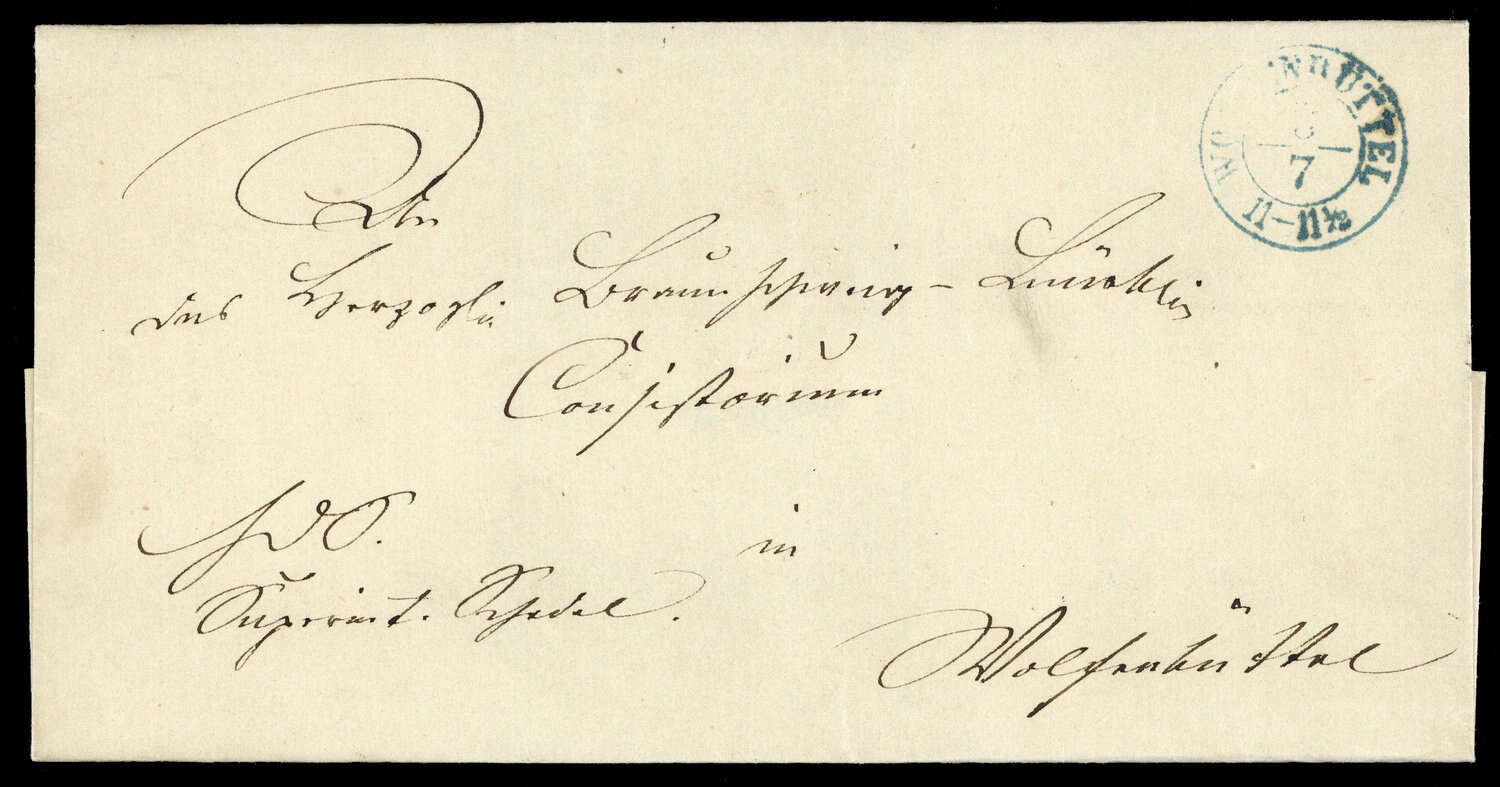 WO NBÜTTEL
7
11-11½
An
das Herzogli Braunschweig-Lüneb
Consistorium
HdS.
in
Superint. Schedel.
Wolfenbüttel